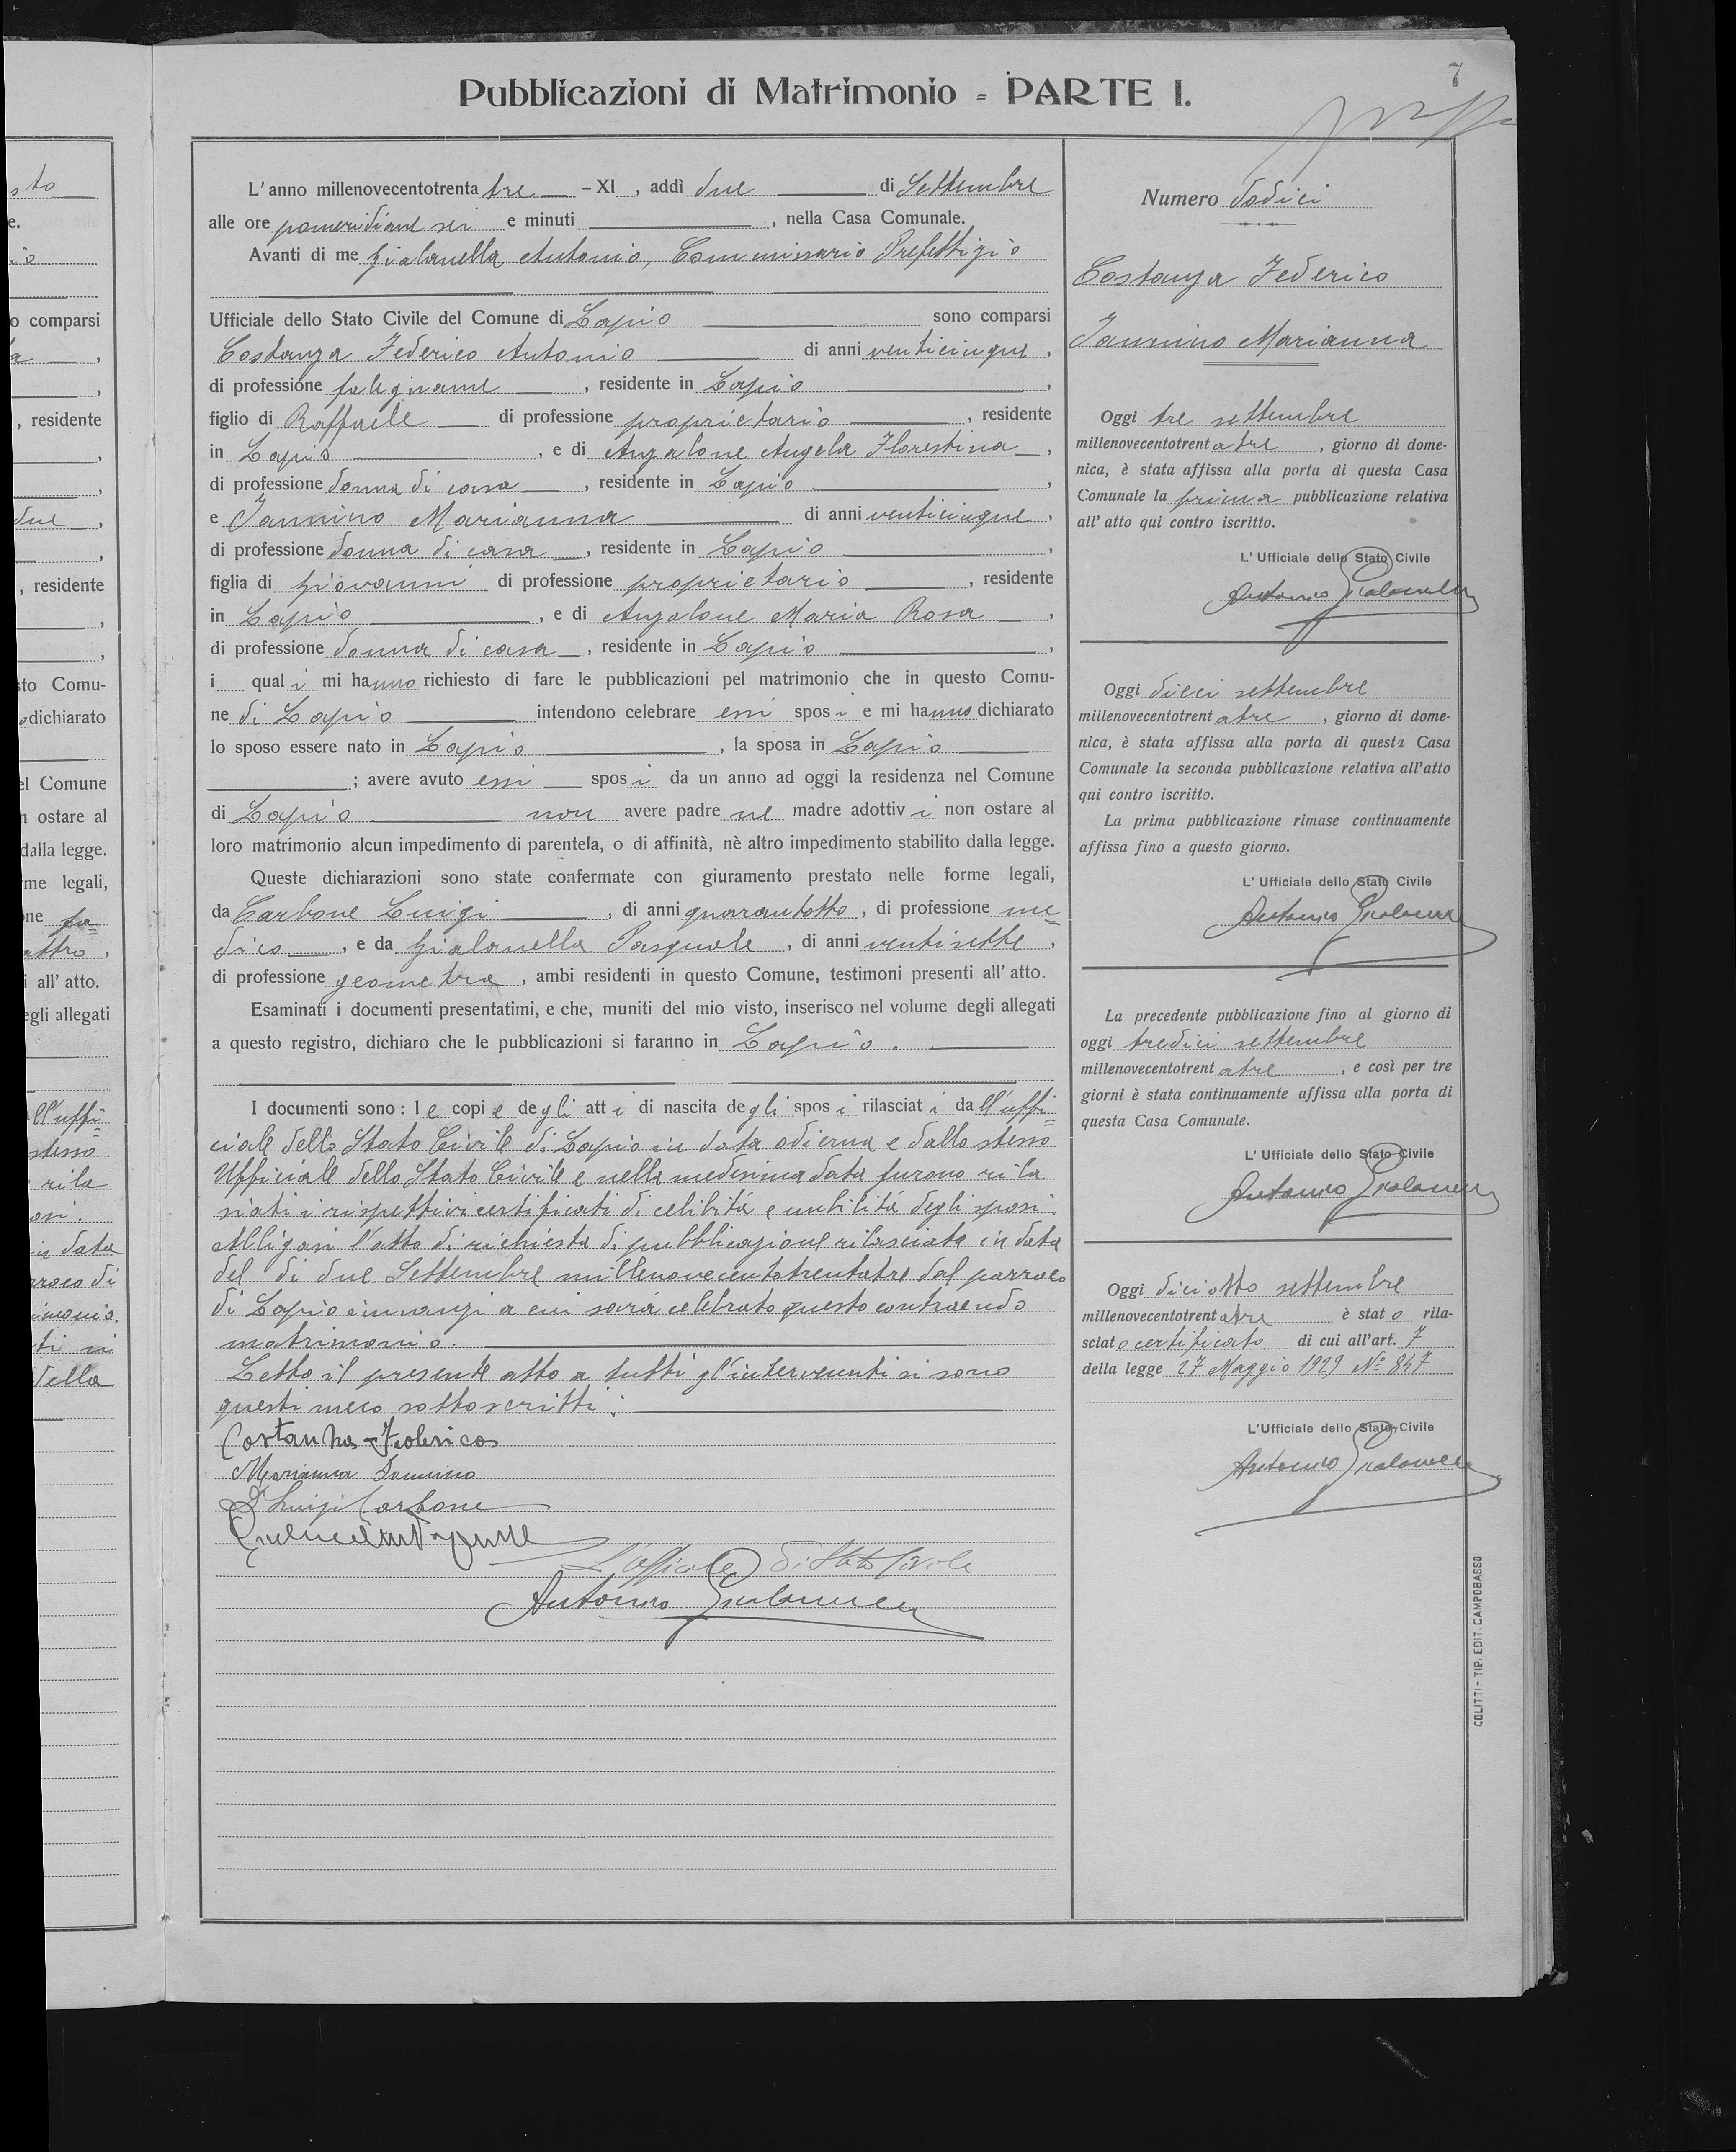 sto
e.
io
o comparsi
a ,
,
, residente
,
,
due ,
,
, residente
,
,
sto Comu-
o dichiarato
el Comune
n ostare al
dalla legge.
me legali,
ne fa=
attro ,
i all' atto.
egli allegati
ll'uffi=
stesso
rila
osi.
in data
arroco di
imonio.
ti si
della
7
Pubblicazioni di Matrimonio = PARTE I.
L' anno millenovecentotrenta tre - XI , addì due di Settembre
alle ore pomeridiane sei e minuti , nella Casa Comunale.
Avanti di me Gialanella Antonio, Commissario Prefettizio
Ufficiale dello Stato Civile del Comune di Lapio sono comparsi
Costanza Federico Antonio di anni venticinque ,
di professione falegname , residente in Lapio ,
figlio di Raffaele di professione proprietario , residente
in Lapio , e di Anzalone Angela Florestina ,
di professione donna di casa , residente in Lapio ,
e Iannino Marianna di anni venticinque ,
di professione donna di casa , residente in Lapio ,
figlia di Giovanni di professione proprietario , residente
in Lapio , e di Anzalone Maria Rosa ,
di professione donna di casa , residente in Lapio ,
i quali mi hanno richiesto di fare le pubblicazioni pel matrimonio che in questo Comu-
ne di Lapio intendono celebrare essi sposi e mi hanno dichiarato
lo sposo essere nato in Lapio , la sposa in Lapio
; avere avuto essi sposi da un anno ad oggi la residenza nel Comune
di Lapio non avere padre nè madre adottivi non ostare al
loro matrimonio alcun impedimento di parentela, o di affinità, nè altro impedimento stabilito dalla legge.
Queste dichiarazioni sono state confermate con giuramento prestato nelle forme legali,
da Carbone Luigi , di anni quarantotto , di professione me=
dico , e da Gialanella Pasquale , di anni ventisette ,
di professione geometra , ambi residenti in questo Comune, testimoni presenti all' atto.
Esaminati i documenti presentatimi, e che, muniti del mio visto, inserisco nel volume degli allegati
a questo registro, dichiaro che le pubblicazioni si faranno in Lapio .
I documenti sono : le copie degli atti di nascita degli sposi rilasciati dall'uffi=
ciale dello Stato Civile di Lapio in data odierna e dallo stesso
Ufficiale dello Stato Civile e nella medesima data furono rila
sciati i rispettivi certificati di celibitá e nubilitá degli sposi.
Alligasi l'atto di richiesta di pubblicazione rilasciata in data
del dì due Settembre millenovecentotrentatre dal parroco
di Lapio innanzi a cui sará celebrato questo contraendo
matrimonio.
Letto il presente atto a tutti gl'intervenuti si sono
questi meco sottoscritti.
Costanza Federico
Marianna Iannino
Dr Luigi Carbone
Gialanella Pasquale
L'Ufficiale di Stato Civile
Antonio Gialanella
Numero dodici
Costanza Federico
Iannino Marianna
Oggi tre settembre
millenovecentotrentatre , giorno di dome-
nica, è stata affissa alla porta di questa Casa
Comunale la prima pubblicazione relativa
all' atto qui contro iscritto.
L' Ufficiale dello Stato Civile
Antonio Gialanella
Oggi dieci settembre
millenovecentotrentatre , giorno di dome-
nica, è stata affissa alla porta di questa Casa
Comunale la seconda pubblicazione relativa all'atto
qui contro iscritto.
La prima pubblicazione rimase continuamente
affissa fino a questo giorno.
L' Ufficiale dello Stato Civile
Antonio Gialanella
La precedente pubblicazione fino al giorno di
oggi tredici settembre
millenovecentotrentatre , e così per tre
giorni è stata continuamente affissa alla porta di
questa Casa Comunale.
L' Ufficiale dello Stato Civile
Antonio Gialanella
Oggi diciotto settembre
millenovecentotrentatre è stato rila-
sciato certificato di cui all'art. 7
della legge 27 Maggio 1929 N° 847
L'Ufficiale dello Stato Civile
Antonio Gialanella
COLITTI - TIP. EDIT. CAMPOBASSO